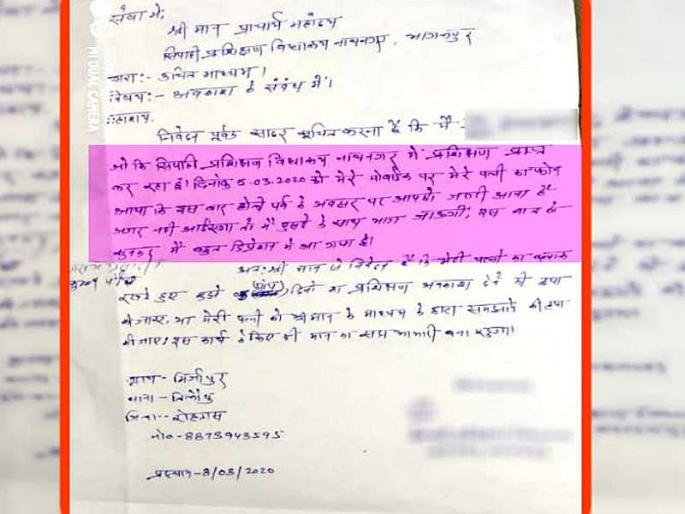 सेवा में,
श्री मान प्राचार्य महोदय
सिपाही प्रशिक्षण विद्यालय नाथनगर, भागलपुर
द्वारा:- उचित माध्यम।
विषय:- अवकाश के संबंध में।
महाशय,
निवेदन पूर्वक सादर सूचित करना है कि मैं
जो कि सिपाही प्रशिक्षण विद्यालय नाथनगर में प्रशिक्षण प्राप्त
कर रहा हूँ। दिनांक 5.03.2020 को मेरे मोबाईल पर मेरे पत्नी का फोन
आया कि इस बार होली पर्व के अवसर पर आपको जरूरी आना है
अगर नहीं आईएगा तो मैं दूसरे के साथ भाग जाऊंगी, इस बात को
सुनकर मैं बहुत डिप्रेशन में आ गया हूँ।
अतः श्री मान से निवेदन है कि मेरी पत्नी का
रखते हुए मुझे पांच दिनों का प्रशिक्षण अवकाश देने की कृपा
की जाए, या मेरी पत्नी को श्रीमान के माध्यम के द्वारा समझाने की कृपा
की जाए। इस कार्य के लिए श्री मान का सदा आभारी बना रहूंगा।
ग्राम - मिर्जापुर
थाना -
जिला - रोहतास
मो० - 8873943595
प्रस्थान - 8/03/2020
DUAL CAMERA